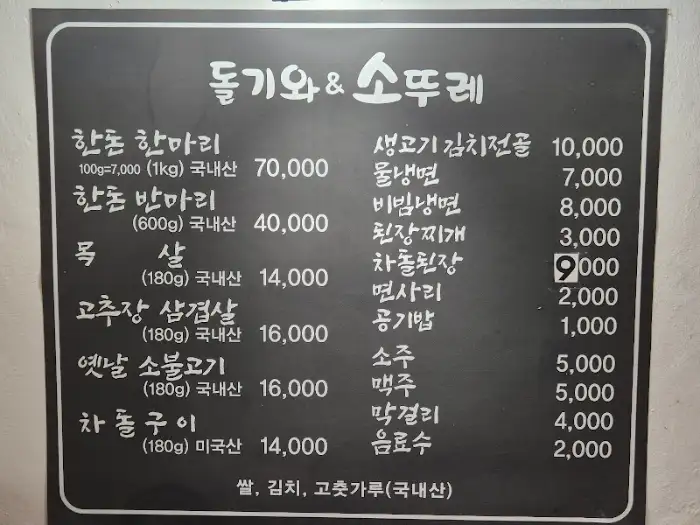 돌기와 & 소뚜레
한돈 한마리
100g=7,000 (1kg) 국내산 70,000
한돈 반마리
(600g) 국내산 40,000
목 살
(180g) 국내산 14,000
고추장 삼겹살
(180g) 국내산 16,000
옛날 소불고기
(180g) 국내산 16,000
차돌구이
(180g) 미국산 14,000
생고기 김치전골 10,000
물냉면 7,000
비빔냉면 8,000
된장찌개 3,000
차돌된장 9000
면사리 2,000
공기밥 1,000
소주 5,000
맥주 5,000
막걸리 4,000
음료수 2,000
쌀, 김치, 고춧가루(국내산)